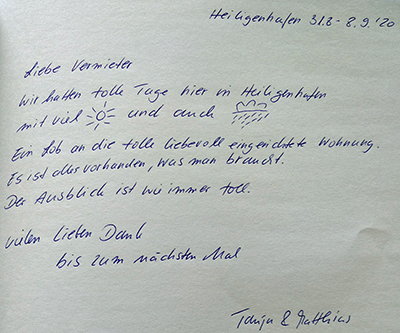 Heiligenhafen 31.8 - 8.9.'20
Liebe Vermieter
Wir hatten tolle Tage hier in Heiligenhafen
mit viel und auch
Ein Lob an die tolle liebevoll eingerichtete Wohnung.
Es ist alles vorhanden, was man braucht.
Der Ausblick ist wie immer toll.
vielen lieben Dank
bis zum nächsten Mal
Tanja & Matthias